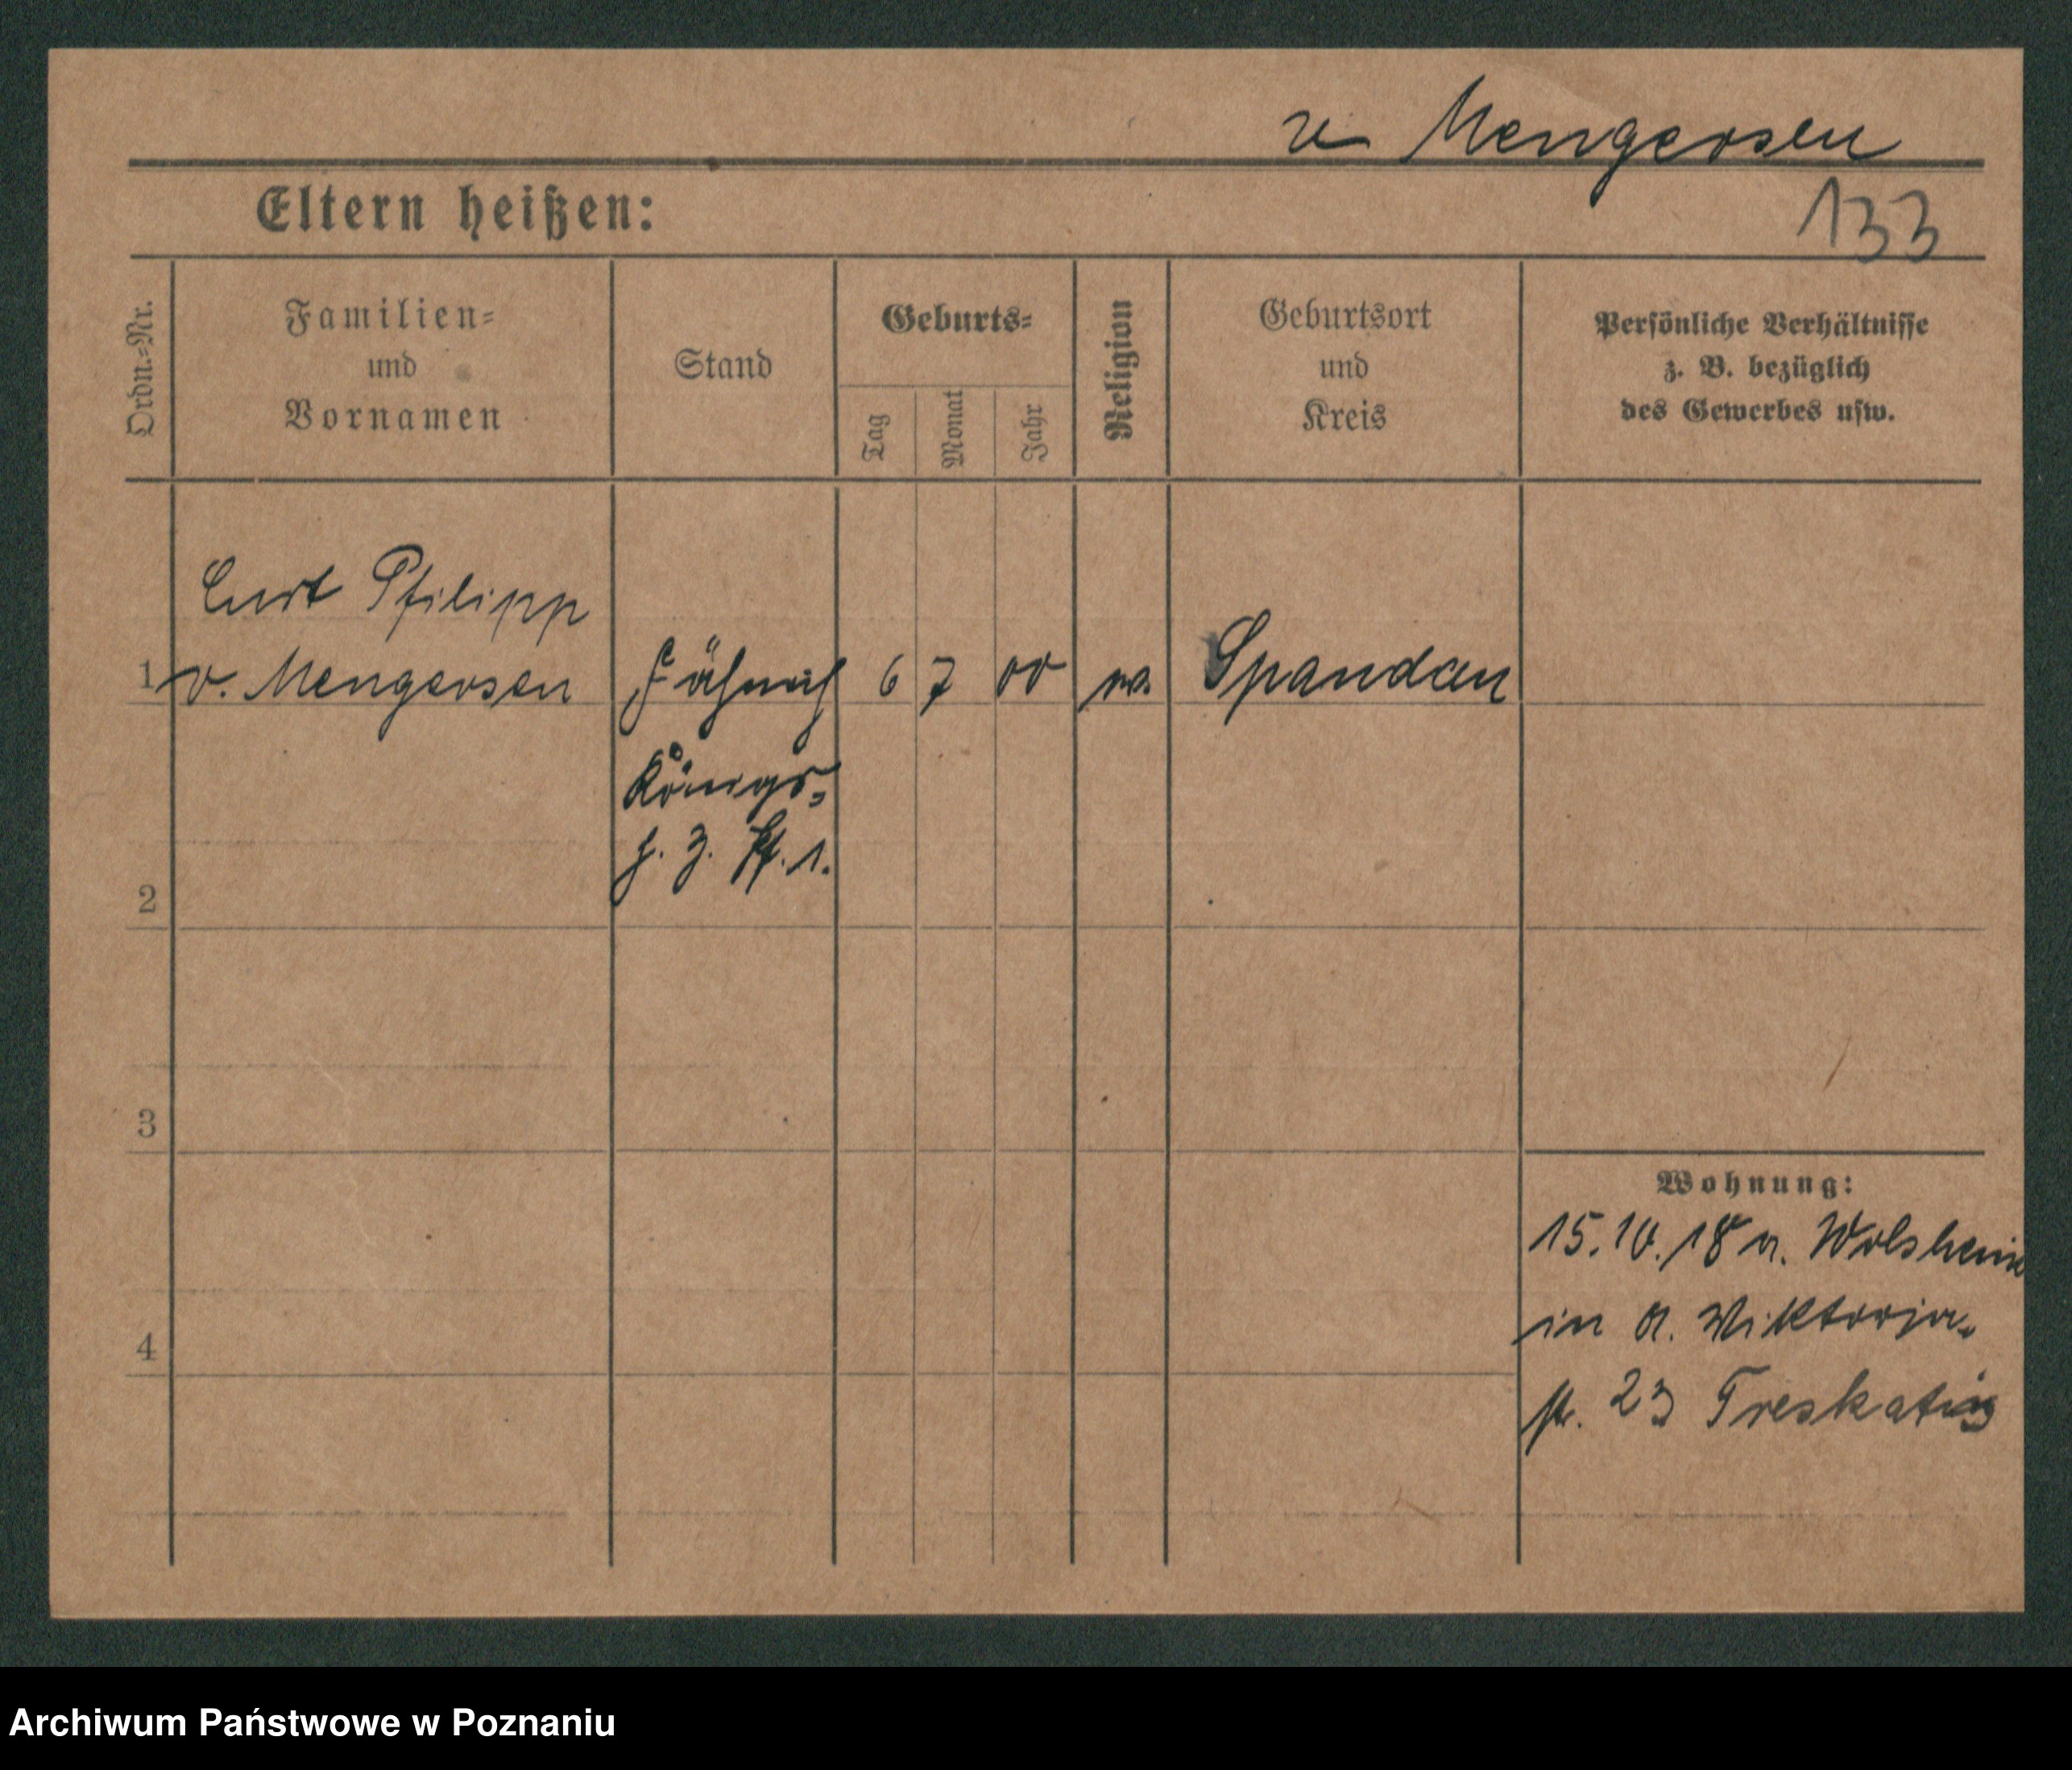 v Mengersen
Eltern heißen:
133
Ordn.-Nr.
Familien-
und
Vornamen
Stand
Geburts-
Tag
Monat
Jahr
Religion
Geburtsort
und
Kreis
Persönliche Verhältnisse
z. B. bezüglich
des Gewerbes usw.
Curt Philipp
1 v. Mengersen Fähnrich 6 7 00 Spandau
Königs-
j. z. Pf. 1.
2
3
Wohnung:
15.10.18 v.
in a. Viktoria-
4
str. 23 Treskatis
Archiwum Państwowe w Poznaniu